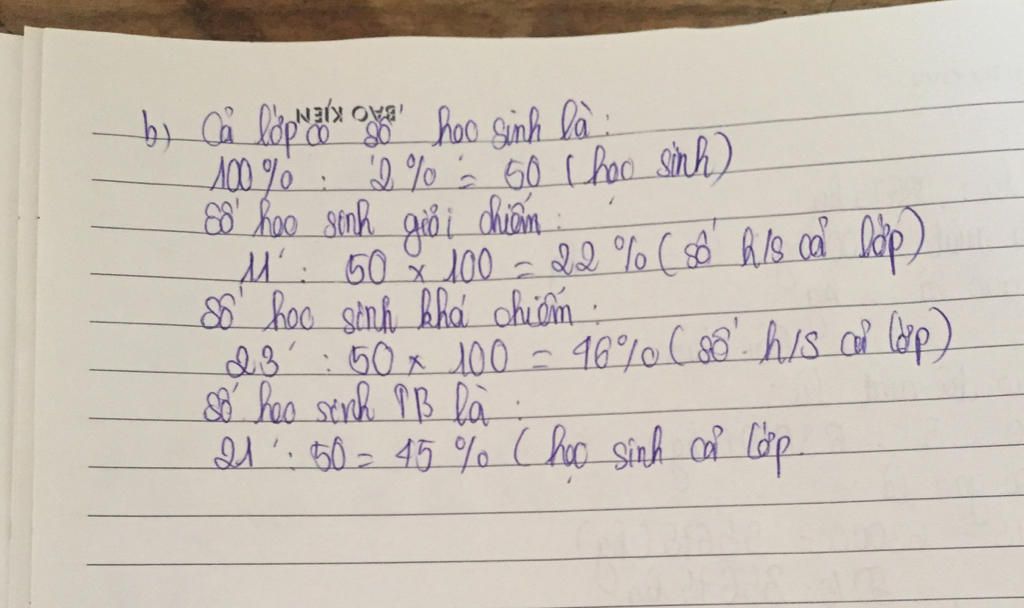 BẢO KIÊN
b) Cả lớp có số học sinh là:
100% : 2% = 50 (học sinh)
Số học sinh giỏi chiếm:
11 : 50 x 100 = 22% (số h/s cả lớp)
Số học sinh khá chiếm:
23 : 50 x 100 = 46% (số h/s cả lớp)
Số học sinh TB là:
21 : 50 = 45% (học sinh cả lớp.